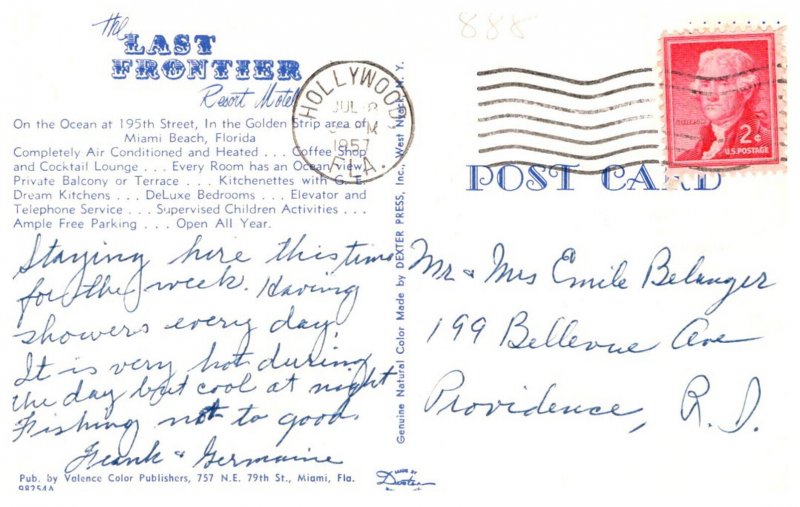 888
The
LAST
FRONTIER
Resort Motel
On the Ocean at 195th Street, In the Golden Strip area of
Miami Beach, Florida
Completely Air Conditioned and Heated . . . Coffee Shop
and Cocktail Lounge . . . Every Room has an Ocean view,
Private Balcony or Terrace . . . Kitchenettes with G. E.
Dream Kitchens . . . DeLuxe Bedrooms . . . Elevator and
Telephone Service . . . Supervised Children Activities . . .
Ample Free Parking . . . Open All Year.
Staying hire this time
for the week. Having
showers every day.
It is very hot during
the day but cool at night
Fishing not to good.
Frank & Germaine
Pub. by Valence Color Publishers, 757 N.E. 79th St., Miami, Fla.
98254A
Genuine Natural Color Made by DEXTER PRESS, Inc., West Nyack, N. Y.
MADE BY
Dexter
HOLLYWOOD,
JUL
M
1957
FLA.
2¢
U.S. POSTAGE
POST CARD
Mr & Mrs Emile Belanger
199 Bellevue Ave
Providence, R. I.